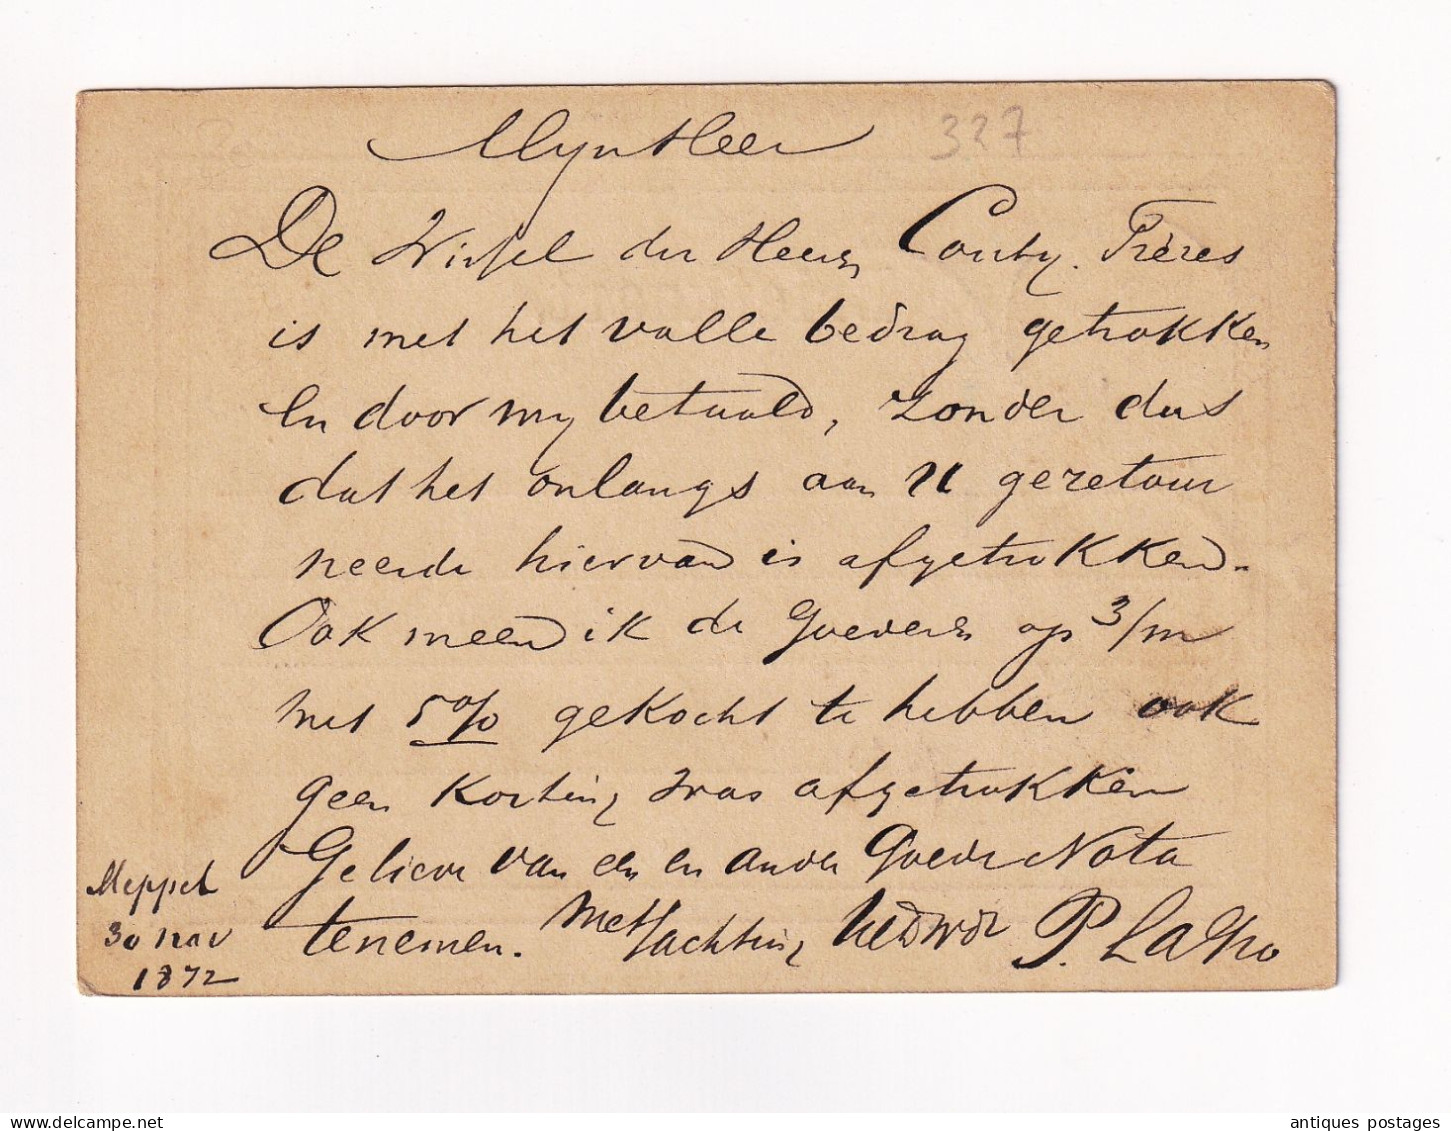 MynHeer
327
De Wissel der Heeren Couty Frères
is met het volle bedrag getrokken
en door my betaald, zonder dus
dat het onlangs aan U geretour
neerde hiervan is afgetrokken.
Ook meen ik de Goederen op 3/m
met 5% gekocht te hebben ook
geen korting was afgetrokken
Gelieve van een en ander Goede Nota
tenemen. Met achting UEdwdr P.
Meppel
30 nov
1872
antiques postages